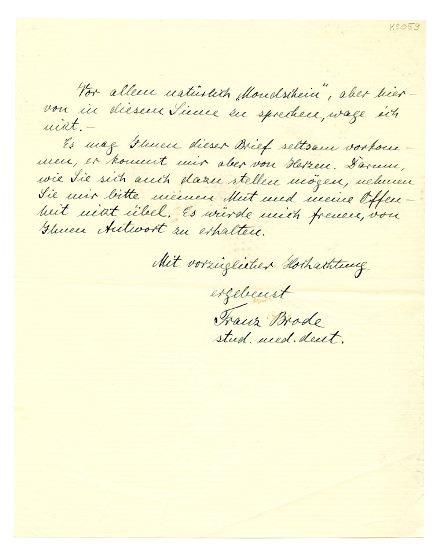 Vor allem natürlich „Mondschein“, aber hier-
von in diesem Sinne zu sprechen, wage ich
nicht. –
Es mag Ihnen dieser Brief seltsam vorkom-
men, er kommt mir aber von Herzen. Darum,
wie Sie sich auch dazu stellen mögen, nehmen
Sie mir bitte meinen Mut und meine Offen-
heit nicht übel. Es würde mich freuen, von
Ihnen Antwort zu erhalten.
Mit vorzüglicher Hochachtung
ergebenst
Franz Brode
stud. med. dent.